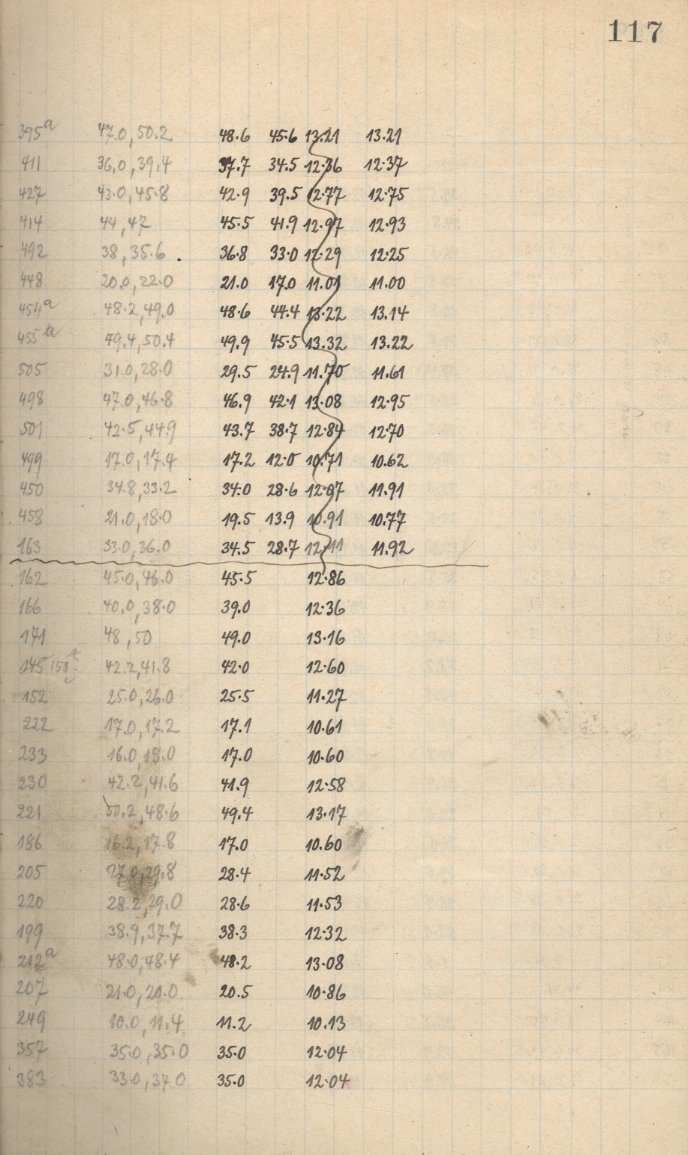 117
395a 47.0, 50.2 48.6 45.6 13.21 13.21
411 36.0, 39.4 37.7 34.5 12.36 12.37
427 43.0, 45.8 42.9 39.5 12.77 12.75
414 44, 47 45.5 41.9 12.97 12.93
492 38, 35.6 36.8 33.0 12.29 12.25
448 20.0, 22.0 21.0 17.0 11.01 11.00
454a 48.2, 49.0 48.6 44.4 13.22 13.14
455a 49.4, 50.4 49.9 45.5 13.32 13.22
505 31.0, 28.0 29.5 24.9 11.70 11.61
498 47.0, 46.8 46.9 42.1 13.08 12.95
501 42.5, 44.9 43.7 38.7 12.84 12.70
499 17.0, 17.4 17.2 12.0 10.71 10.62
450 34.8, 33.2 34.0 28.6 12.07 11.91
458 21.0, 18.0 19.5 13.9 10.91 10.77
163 33.0, 36.0 34.5 28.7 12.11 11.92
162 45.0, 46.0 45.5 12.86
166 40.0, 38.0 39.0 12.36
171 48, 50 49.0 13.16
145 150 42.2, 41.8 42.0 12.60
152 25.0, 26.0 25.5 11.27
222 17.0, 17.2 17.1 10.61
233 16.0, 18.0 17.0 10.60
230 42.2, 41.6 41.9 12.58
221 50.2, 48.6 49.4 13.17
186 16.2, 17.8 17.0 10.60
205 27.0, 29.8 28.4 11.52
220 28.2, 29.0 28.6 11.53
199 38.9, 37.7 38.3 12.32
212a 48.0, 48.4 48.2 13.08
207 21.0, 20.0 20.5 10.86
249 10.0, 11.4 11.2 10.13
357 35.0, 35.0 35.0 12.04
383 33.0, 37.0 35.0 12.04